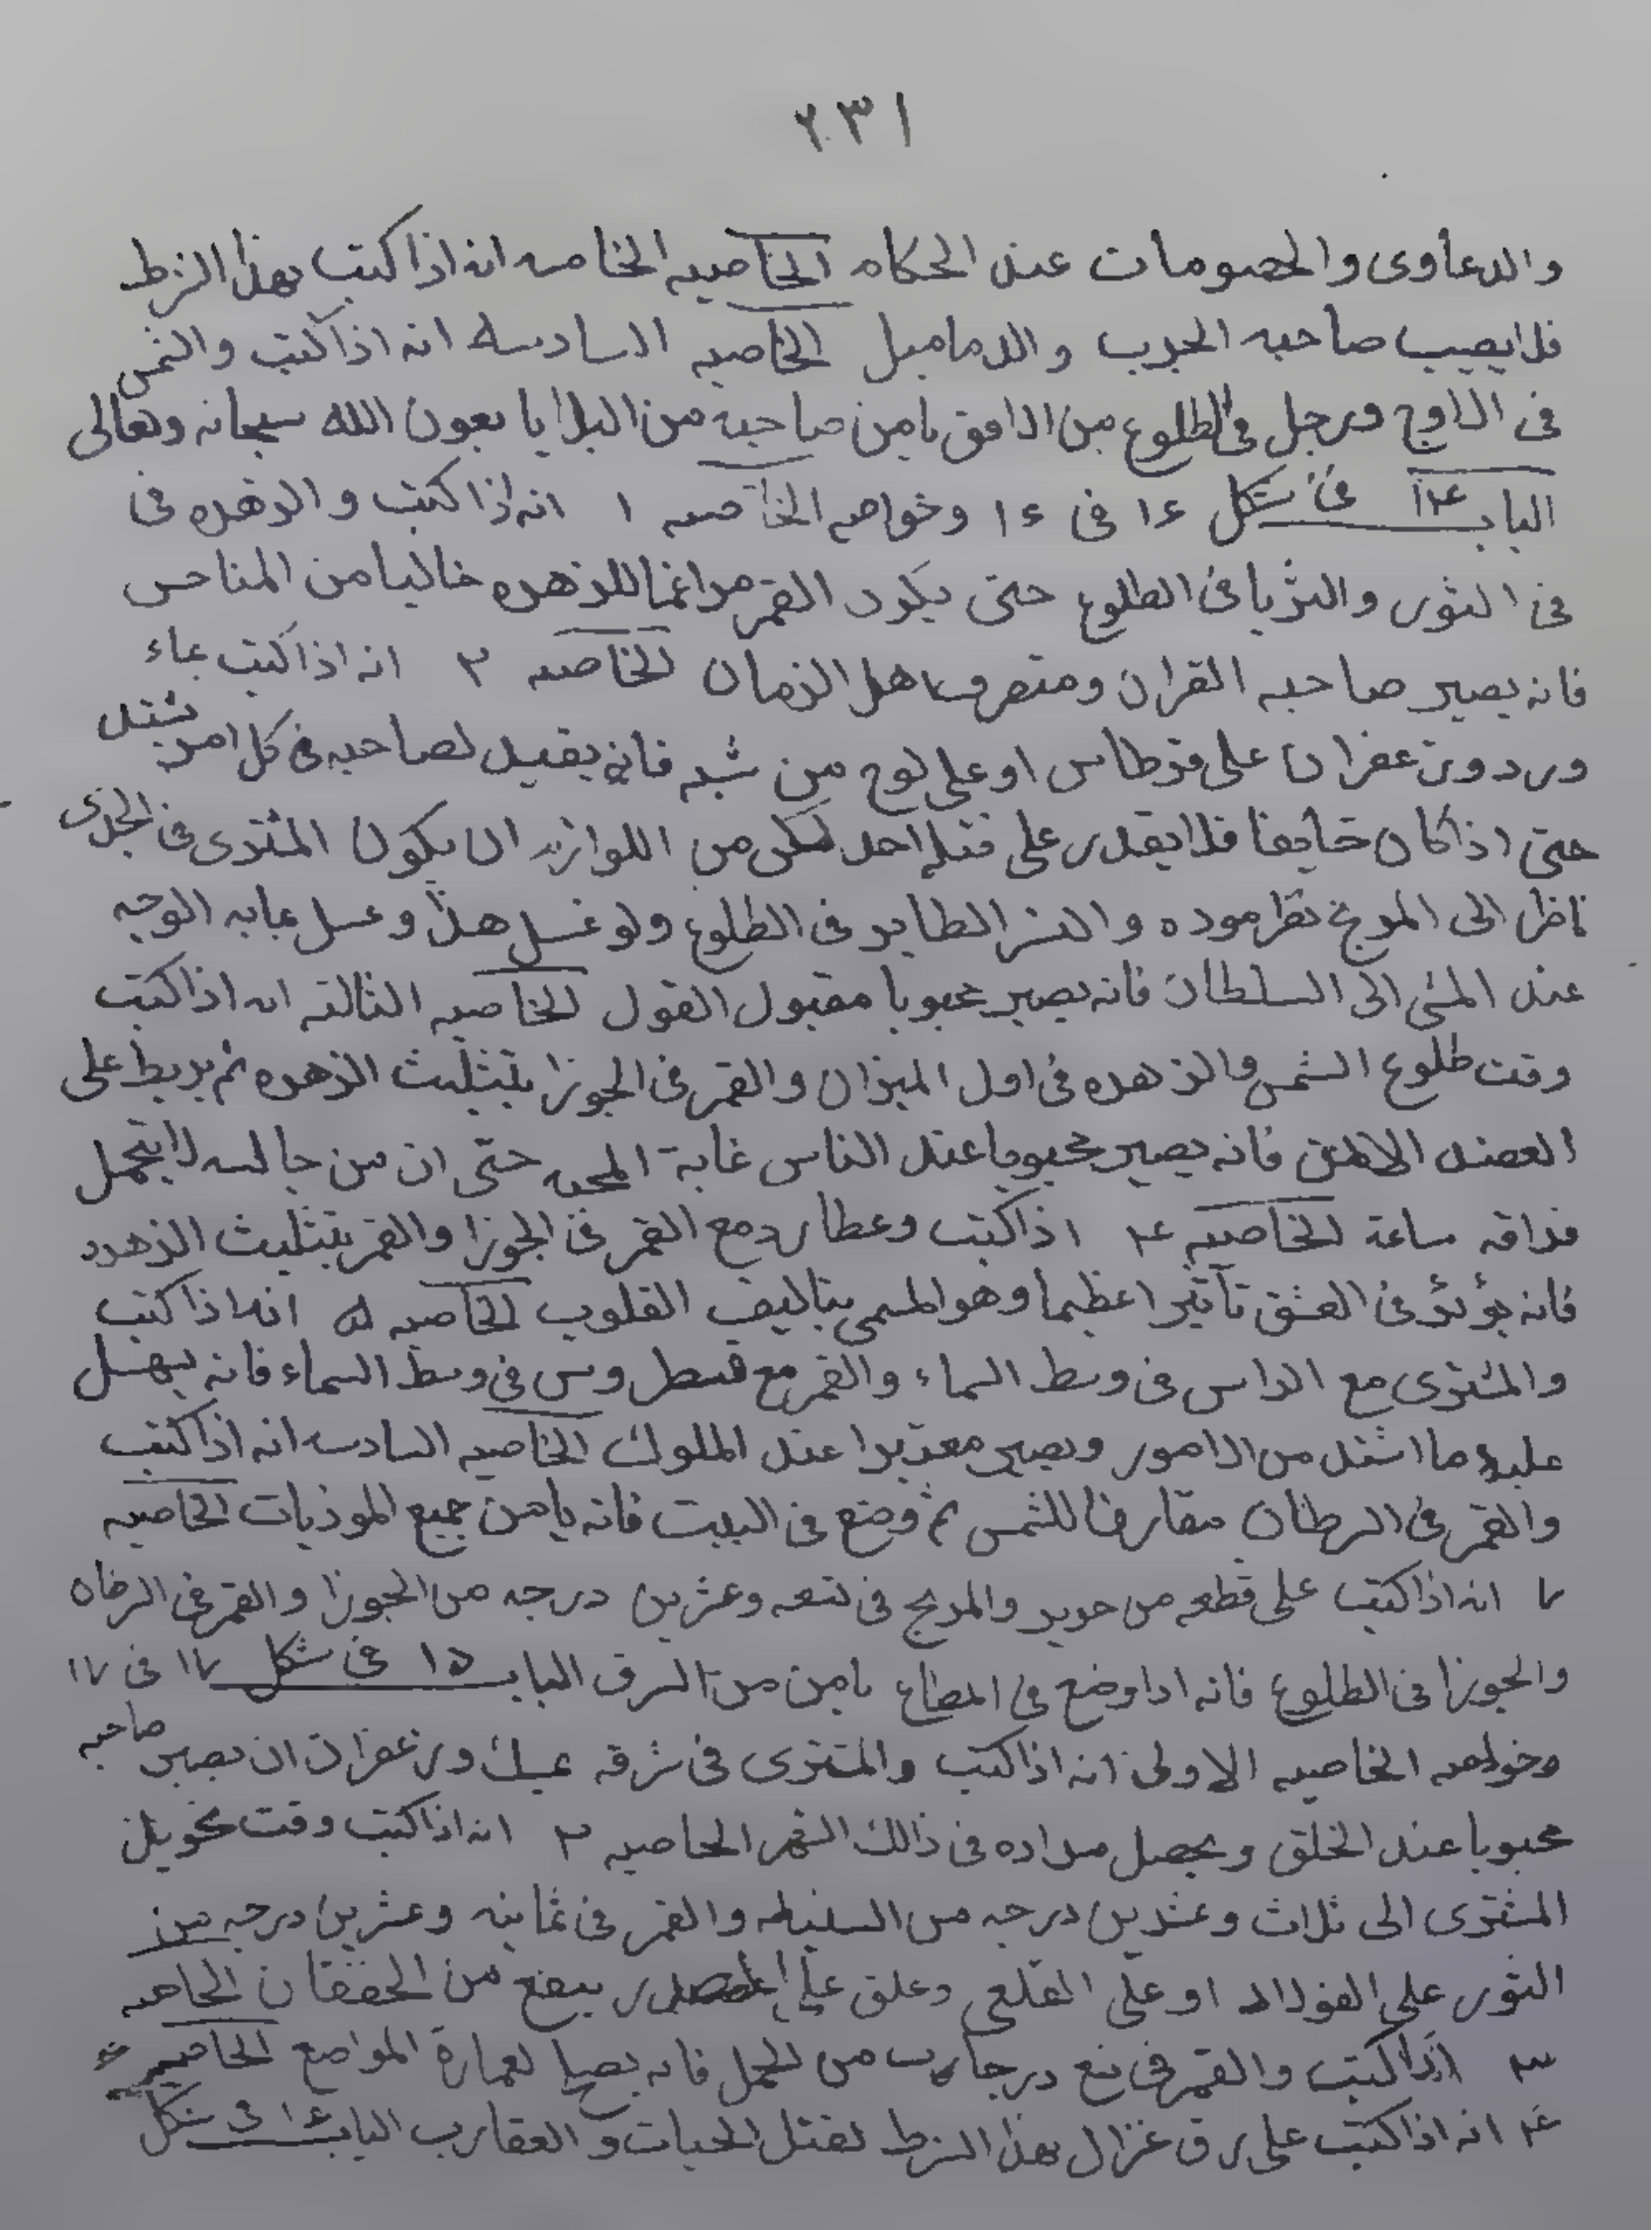 ٢٣١
والدعاوى والخصومات عند الحكام الخاصيه الخامسه انه اذا كتب بهذا الشرط
فلا يصيب صاحبه الجرب والدماميل الخاصيه السادسه انه اذا كتب والشمس
فى الاوج وزحل فى الطلوع من الافق يامن صاحبه من البلايا بعون الله سبحانه وتعالى
الباب ١٤ فى شكل ١٦ فى ١٦ وخواصه الخاصيه ١ انه اذا كتب والزهره فى
فى الثور والثريا فى الطلوع حتى يكون القمر خاليا من المناحس
فانه يصير صاحب القران ومتصرف اهل الزمان الخاصيه ٢ انه اذا كتب بماء
ورد وزعفران على قرطاس او على لوح من شبه فانه يفيد لصاحبه فى كل امر يشتد
حتى اذا كان خايفا فلا يقدر على قتله احد لكن من اللوازم ان يكون المشترى فى الجدى
ناظرا الى المريخ نظر موده والنسر الطاير فى الطلوع ولو غسل هذا وغسل بمايه الوجه
عند المشى الى السلطان فانه يصير محبوبا مقبول القول الخاصيه الثالثه انه اذا كتب
وقت طلوع الشمس والزهره فى اول الميزان والقمر فى الجوزا بتثليث الزهره ثم يربط على
العضد الايمن فانه يصير محبوبا عند الناس غاية المحبه حتى ان من جالسه لا يتحمل
فراقه ساعة الخاصيه ٤ اذا كتب وعطارد مع القمر فى الجوزا والقمر بتثليث الزهره
فانه يؤثر فى العشق تاثيرا عظيما وهو المسمى بتاليف القلوب الخاصيه ٥ انه اذا كتب
والمشترى مع الراس فى وسط السماء والقمر مع فى وسط السماء فانه يسهل
عليه ما اشتد من الامور ويصير معتبرا عند الملوك الخاصيه السادسه انه اذا كتب
والقمر فى السرطان مقارنا للشمس ثم وضع فى البيت فانه يامن جميع الموذيات الخاصيه
٧ انه اذا كتب على قطعه من حرير والمريخ فى تسعه وعشرين درجه من الجوزا والقمر فى
والجوزا فى الطلوع فانه اذا وضع فى المتاع يامن من السرق الباب ١٥ فى شكل ١٧ فى ١٧
وخواصه الخاصيه الاولى انه اذا كتب والمشترى فى شرفه بمسك وزعفران ان يصير صاحبه
محبوبا عند الخلق ويحصل مراده فى ذالك الشهر الخاصيه ٢ انه اذا كتب وقت تحويل
المشترى الى ثلاث وعشرين درجه من السنبله والقمر فى ثمانيه وعشرين درجه من
الثور على الفولاد او على القلعى وعلق على الصدر ينفع من الخفقان الخاصيه
٣ اذا كتب والقمر فى تسع درجات من الحمل فانه يصلح لعمارة المواضع الخاصيه
٤ انه اذا كتب على رق غزال بهذا الشرط لقتل الحيات والعقارب الباب ١٦ فى شكل